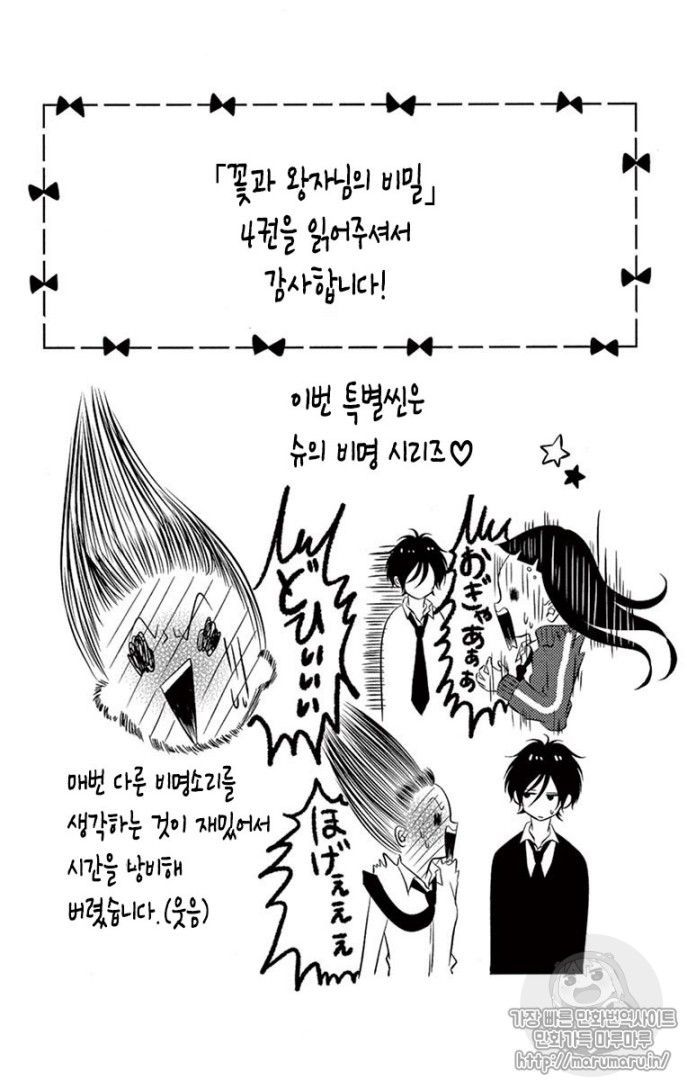 「꽃과 왕자님의 비밀」
4권을 읽어주셔서
감사합니다!
이번 특별씬은
슈의 비명 시리즈♡
おぎゃあぁぁ
どひぃぃぃ
매번 다른 비명소리를
생각하는 것이 재밌어서
시간을 낭비해
버렸습니다.(웃음)
ほげぇぇぇ
가장 빠른 만화번역사이트
만화가득 마루마루
http://marumaru.in/